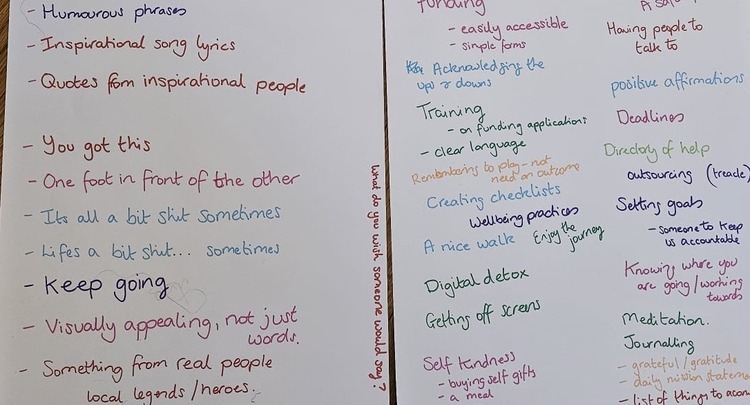 - Humourous phrases
- Inspirational song lyrics
- Quotes from inspirational people
- You got this
- One foot in front of the other
- Its all a bit shit sometimes
- Lifes a bit shit... sometimes
- Keep going
- Visually appealing, not just
words.
- Something from real people
local legends / heroes.
What do you wish someone would say?
funding
- easily accessible
- simple forms
Acknowledging the
ups & downs
Training
- on funding applications
- clear language
Remembering to play - not
need an outcome
Creating checklists
Wellbeing practices
A nice walk
Enjoy the
journey
Digital detox
Getting off screens
Self kindness
- buying self gifts
- a meal
Having people to
talk to
positive affirmations
Deadlines
Directory of help
outsourcing (treacle)
Setting goals
- someone to keep
us accountable
Knowing where you
are going / working
towards
Meditation.
Journalling
- grateful / gratitude
- daily mission
- list of things to